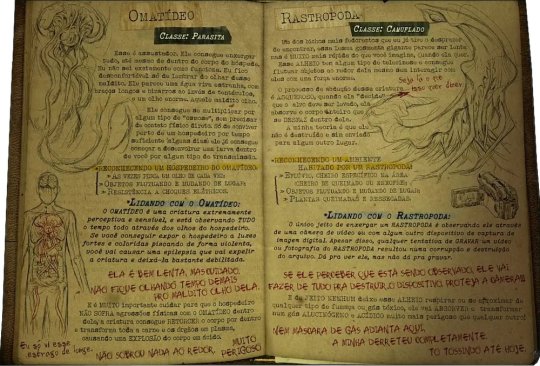 OMATÍDEO
CLASSE: PARASITA
Esse é assustador. Ele consegue enxergar
tudo, até mesmo de dentro do corpo do hóspede.
Eu não sei exatamente como funciona. Eu fico
desconfortável só de lembrar do olhar desse
maldito. Ele parece uma água viva estranha, com
braços longos e diversos ao invés de tentáculos,
e um olho enorme. Aquele maldito olho.
Ele consegue se multiplicar por
algum tipo de "osmose", sem precisar
de contato físico direto. Só de conviver
perto de um hospedeiro por tempo
suficiente alguns dias ele já consegue
começar a desenvolver uma larva dentro
de você por algum tipo de transmissão.
RECONHECENDO UM HOSPEDEIRO DO OMATÍDEO
ÀS VEZES TODA UM OLHO DE CADA VEZ
OBJETOS FLUTUANDO E MUDANDO DE LUGAR
RESISTÊNCIA A CHOQUES ELÉTRICOS
LIDANDO COM O OMATÍDEO:
O OMATÍDEO é uma criatura extremamente
perceptiva e sensível, e está observando TUDO
o tempo todo através dos olhos do hospedeiro.
Se você conseguir expor o hospedeiro a luzes
fortes e coloridas piscando de forma violenta,
você vai causar uma epilepsia que vai expelir
a criatura e deixá-la bastante debilitada.
ELA É BEM LENTA, MAS CUIDADO,
NÃO FIQUE OLHANDO TEMPO DEMAIS
PRO MALDITO OLHO DELA.
É MUITO importante cuidar para que o hospedeiro
NÃO SOFRA agressões físicas com o OMATÍDEO dentro
dele, a criatura consegue RETORCER o corpo por dentro
e transforma toda a carne e os órgãos em plasma,
causando uma EXPLOSÃO do corpo em ácido.
Eu só vi esse
estrago de longe.
NÃO SOBROU NADA AO REDOR.
MUITO
PERIGOSO
RASTROPODA
CLASSE: CAMUFLADO
Um dos bichos mais fedorentos que eu já tive o desprazer
de encontrar, essa lesma gosmenta gigante parece ser lenta
mas é MUITO mais rápida do que você imagina, quando quer.
Esse ALHEIO tem algum tipo de telecinese e consegue
flutuar objetos ao redor dela mesmo sem interagir com
eles com uma força enorme.
O processo de abdução dessa criatura
é ASQUEROSO, quando ela "decide"
que o alvo deve ser levado, ela
absorve o corpo inteiro que
se DESFAZ dentro dela.
A minha teoria é que ele
não é destruído e sim enviado
para algum outro lugar.
Seja lá o que
isso quer dizer.
RECONHECENDO UM AMBIENTE
HABITADO POR UM RASTROPODA:
CHEIRO DE QUEIMADO OU ENXOFRE
OBJETOS FLUTUANDO E MUDANDO DE LUGAR
PLANTAS QUEIMADAS E RESSECADAS
LIDANDO COM O RASTROPODA:
O único jeito de enxergar um RASTROPODA é observando ele através
de uma câmera de vídeo ou com algum outro dispositivo de captura
de imagem digital. Apesar disso, qualquer tentativa de GRAVAR um vídeo
ou fotografia do RASTROPODA resultou numa corrupção e destruição
do arquivo. Dá pra ver ele, mas não dá pra gravar.
SE ELE PERCEBER QUE ESTÁ SENDO OBSERVADO, ELE VAI
FAZER DE TUDO PRA DESTRUIR O DISPOSITIVO, PROTEJA A CÂMERA!!
E de JEITO NENHUM deixe esse ALHEIO respirar ou se aproximar de
qualquer tipo de fumaça ou gás tóxico, ele vai ABSORVER e transformar
num gás ALUCINÓGENO e ÁCIDO muito mais perigoso que qualquer outro!
NEM MÁSCARA DE GÁS ADIANTA AQUI,
A MINHA DERRETEU COMPLETAMENTE.
TO TOSSINDO ATÉ HOJE